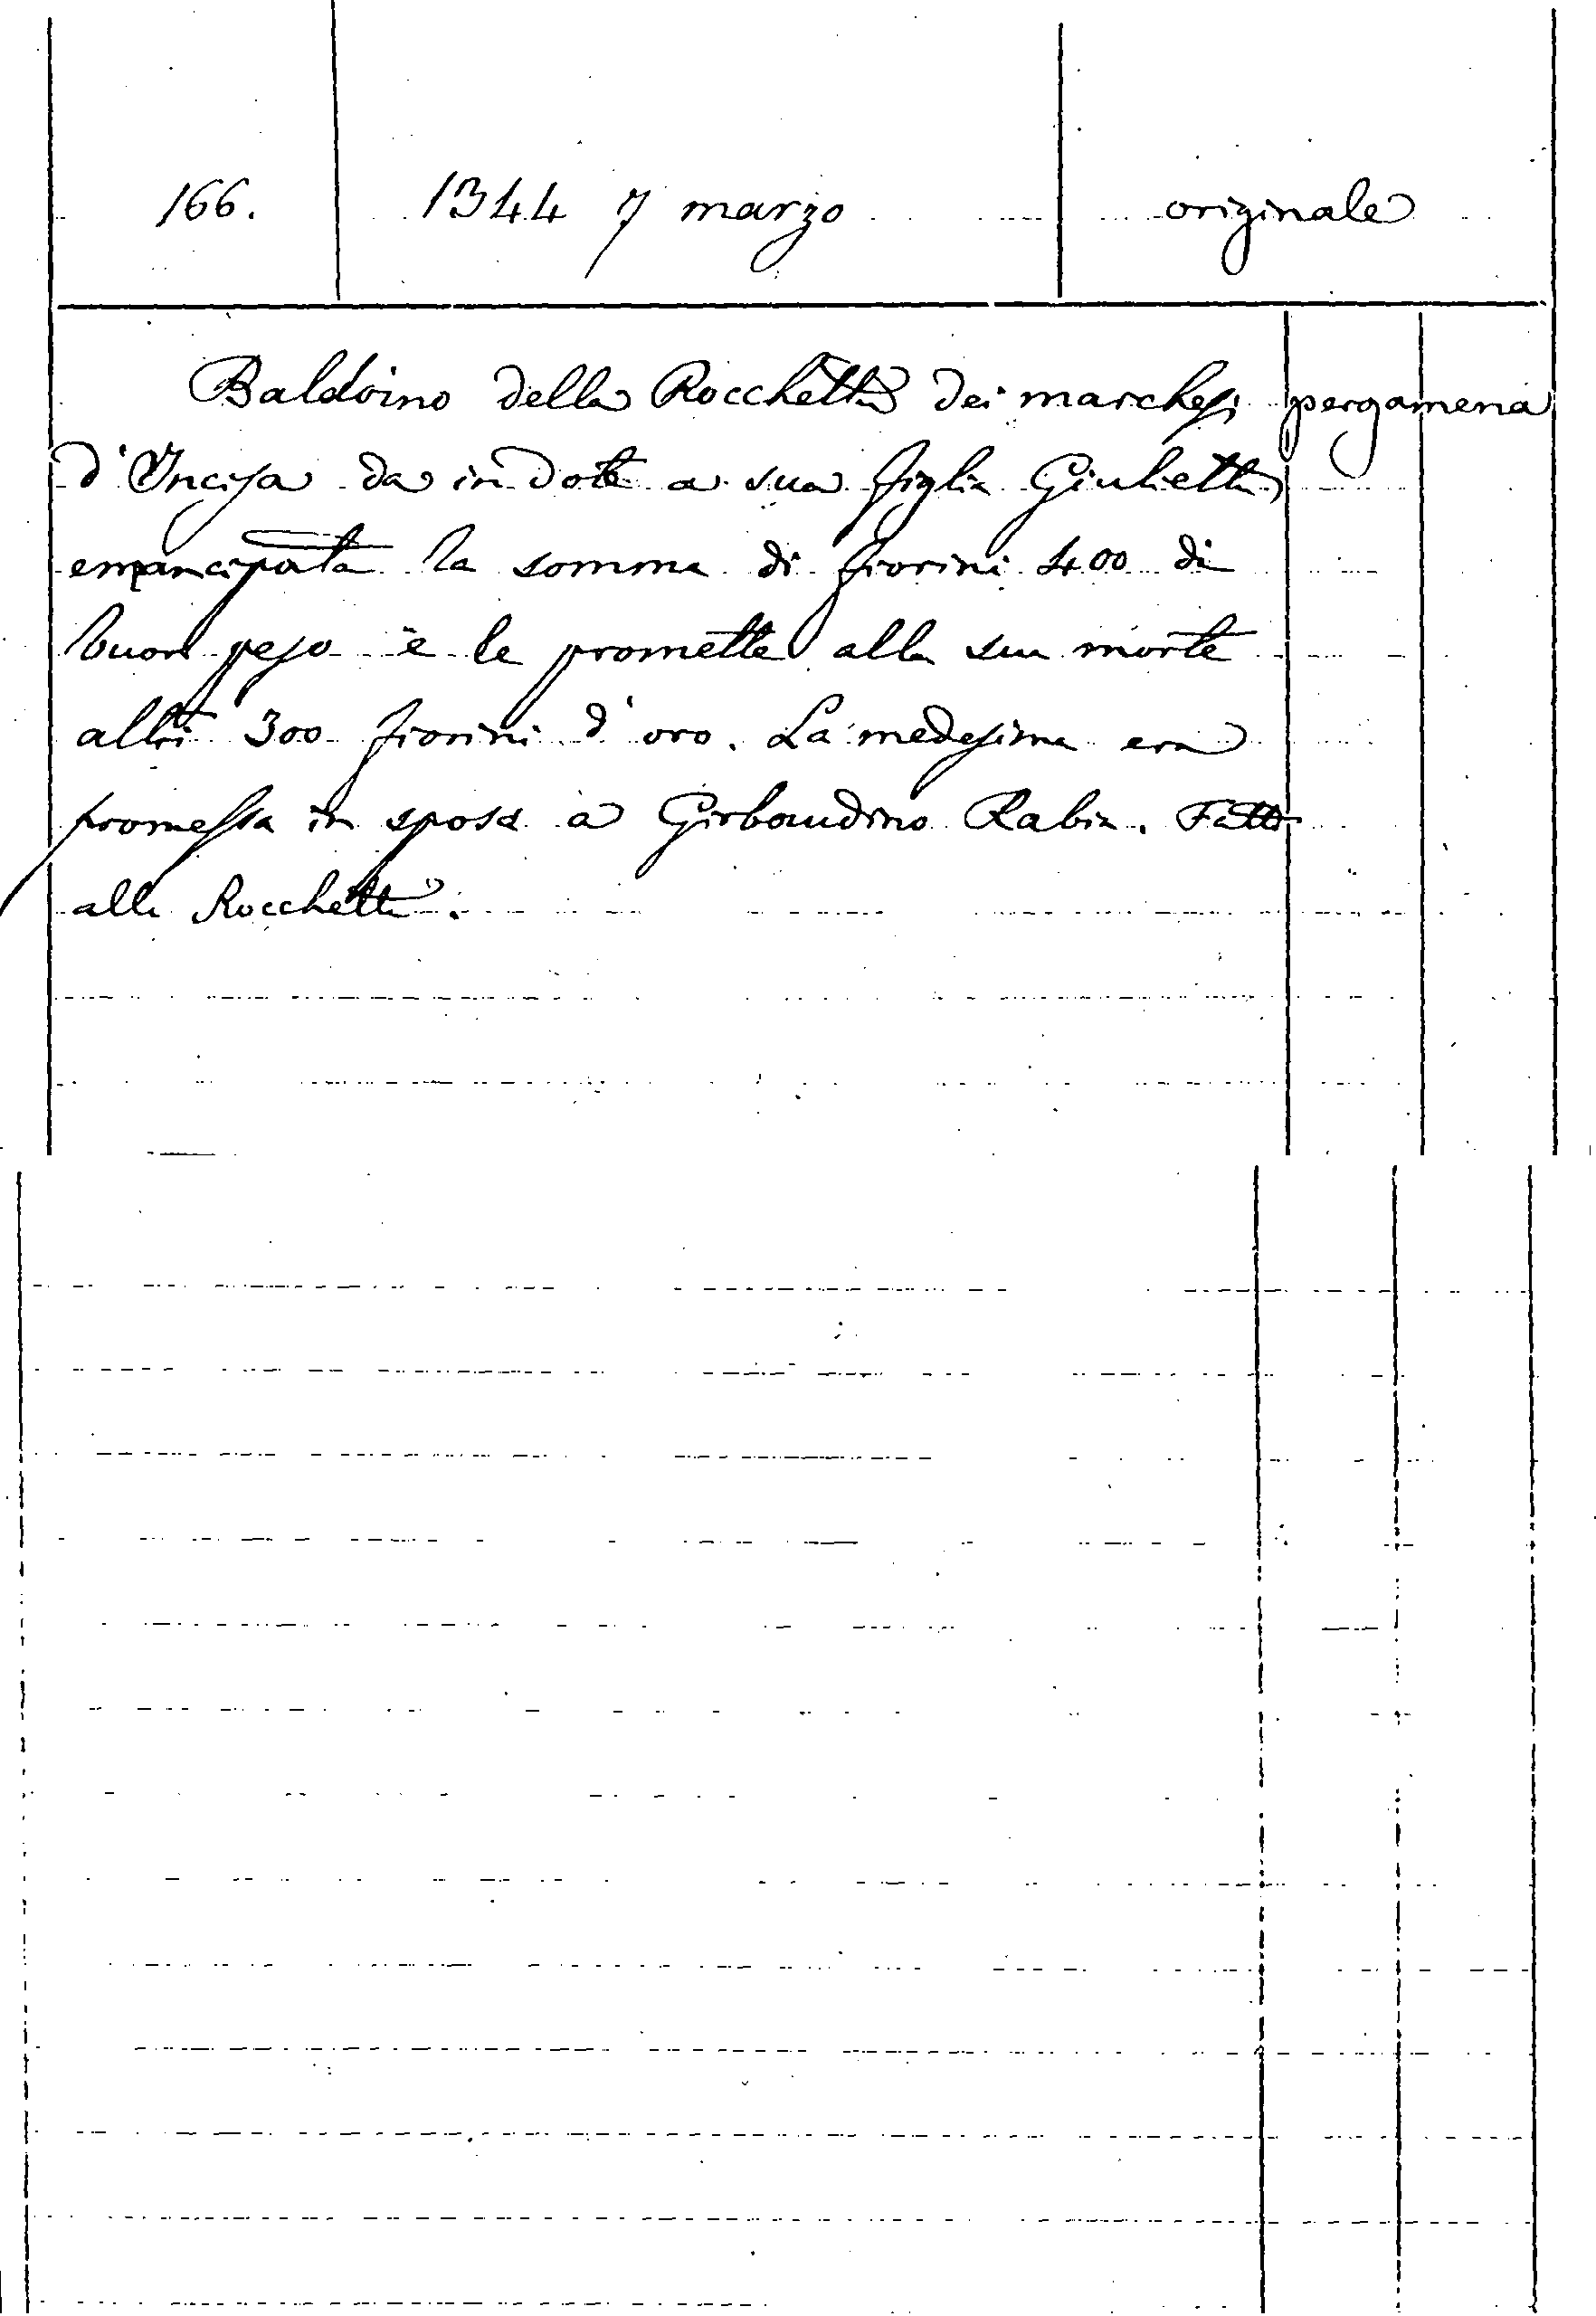 166. 1344 7 marzo originale
Baldoino della Rocchetta dei marchesi pergamena
d'Incisa da in dote a sua figlia Giulietta
emancipata la somma di fiorini 400 di
buon peso e le promette alla sua morte
altri 300 fiorini d'oro. La medesima era
promessa in sposa a Girbaudino Rabia. Fatto
alla Rocchetta.